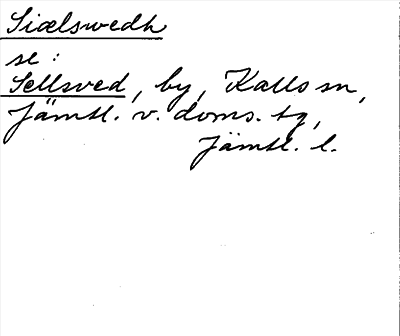 Siælswedh
se:
Sellsved, by, Kalls sn,
Jämtl. v. doms. tg,
Jämtl. l.